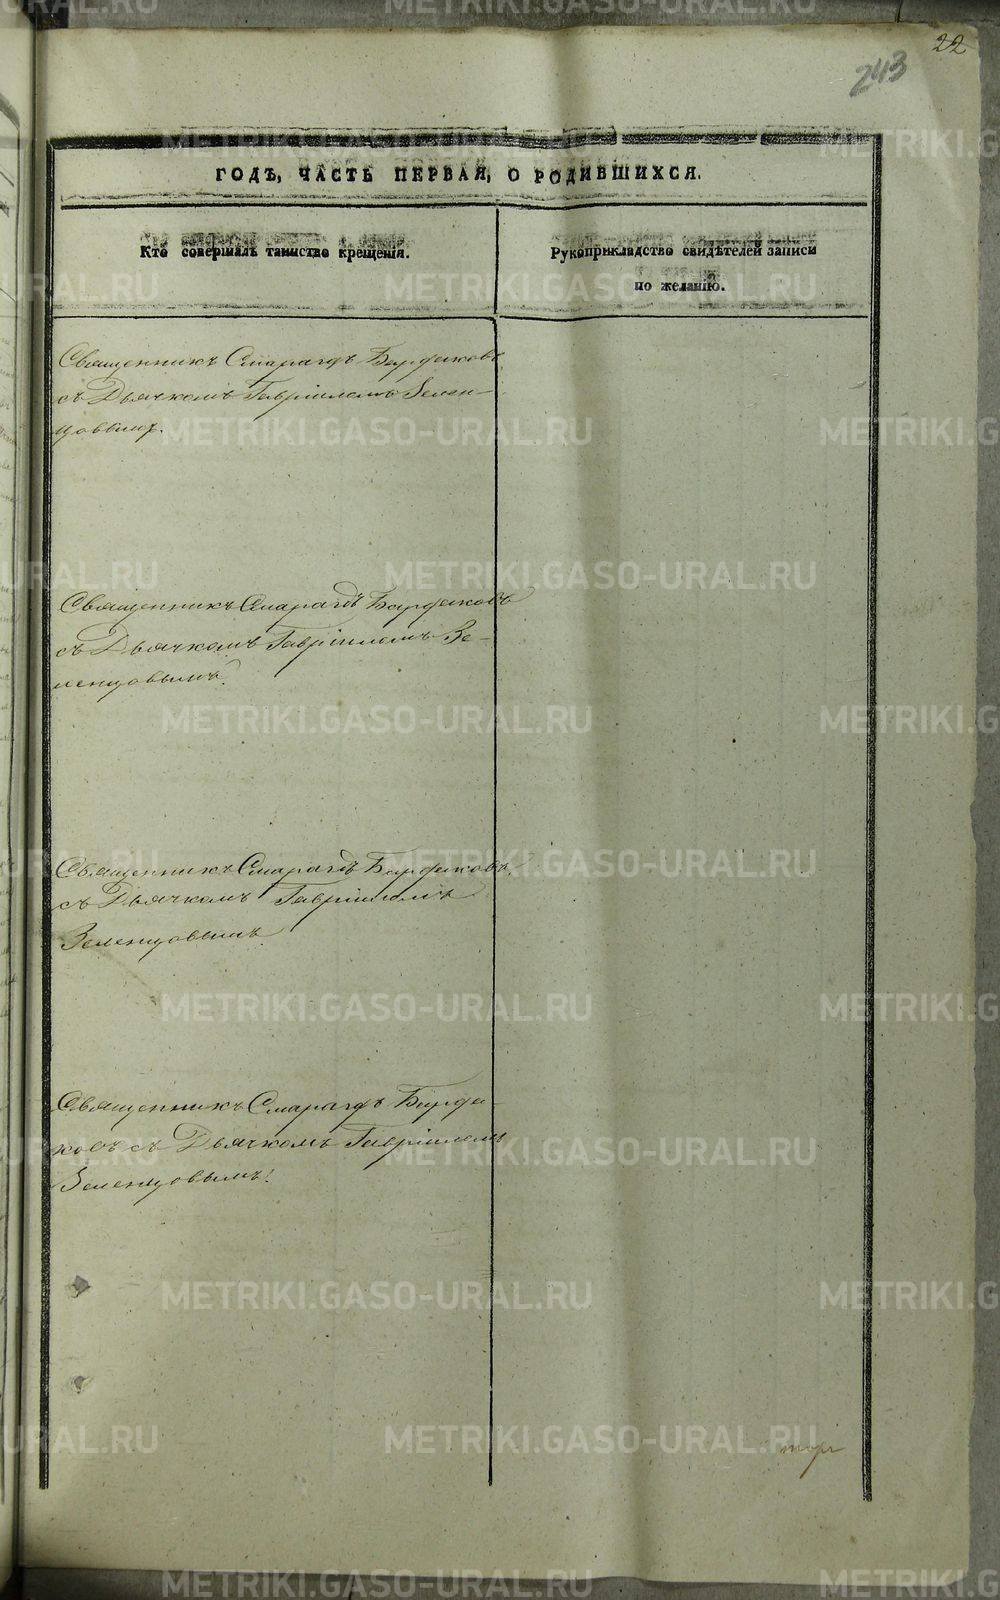 22
243
ГОДЪ, ЧАСТЬ ПЕРВАЯ, О РОДИВШИХСЯ.
Кто совершалъ таинство крещенія.
Рукоприкладство свидѣтелей записи
по желанію.
Священникъ Смарагдъ Бирюковъ
съ Дьячкомъ Гавріиломъ Зелен-
цовымъ.
Священникъ Смарагдъ
съ Дьячкомъ Гавріиломъ Зе-
ленцовымъ.
Священникъ Смарагдъ
съ Дьячкомъ Гавріиломъ
Зеленцовымъ.
Священникъ Смарагдъ
ковъ съ Дьячкомъ Гавріиломъ
Зеленцовымъ.
METRIKI.GASO-URAL.RU